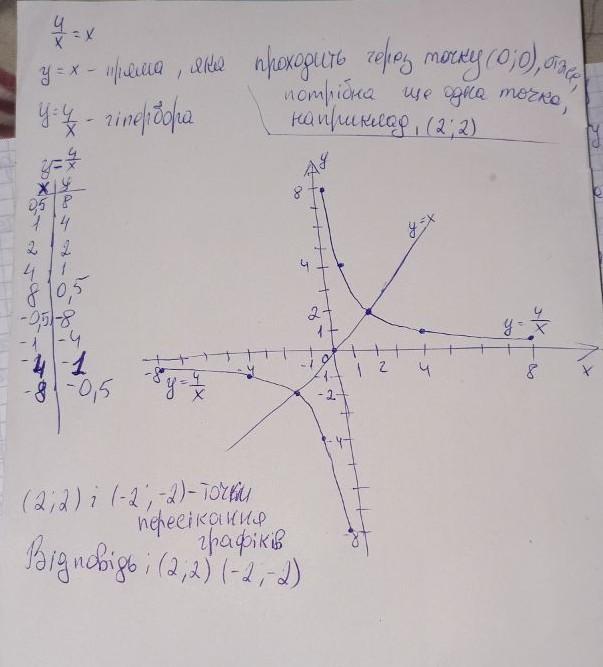 4/x = x
y = x - пряма, яка проходить через точку (0;0), отже,
потрібна ще одна точка,
y = 4/x - гіпербора
наприклад, (2;2)
y = 4/x
x y
0,5 8
1 4
2 2
4 1
8 0,5
-0,5 -8
-1 -4
-4 -1
-8 -0,5
y
8
4
2
1
y = x
y = 4/x
-8 -4 -1 0 1 2 4 8 x
y = 4/x
-1
-2
-4
-8
(2;2) і (-2;-2) - точки
пересікання
графіків
Відповідь: (2;2) (-2;-2)